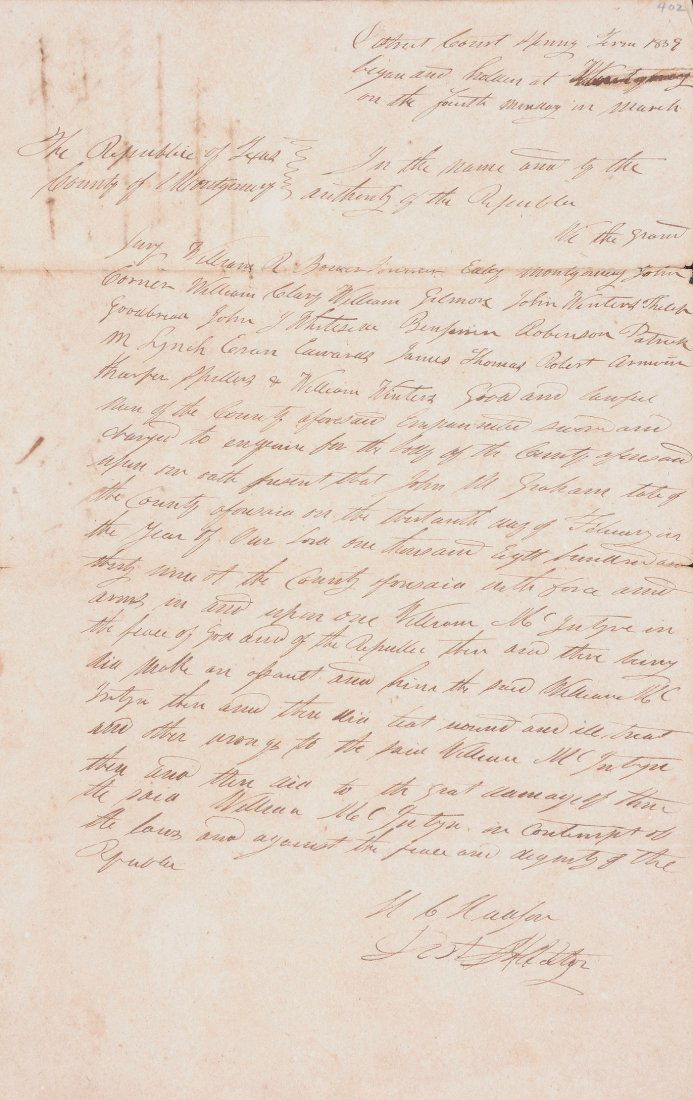 402
District Court Spring Term 1839
began and holden at Montgomery
on the fourth monday in march
The Republic of Texas
County of Montgomery
In the name and by the
authority of the Republic
We the grand
Jury William R. Bowen Ealey Montgomery John
Corner William Clary William Gilmore John Winters Kaleb
Goodbread John J Whiteside Benjamin Robinson Patrick
M Lynch Edwards James Thomas Robert
Spillers & William Winters Good and lawful
men of the County aforesaid Empannelled sworn and
charged to enquire for the body of the County aforesaid
upon our oath present that John M Graham late of
the County aforesaid on the thirteenth day of February in
the Year of Our Lord one thousand Eight hundred and
thirty nine at the County aforesaid with force and
arms in and upon one William Mc Intyre in
the peace of God and of the Republic then and there being
did make an assault and him the said William Mc
Intyre then and there did beat wound and ill treat
and other wrongs to the said William Mc Intyre
then and there did to the great damage of
the said William Mc Intyre in contempt of
the laws and against the peace and dignity of the
Republic